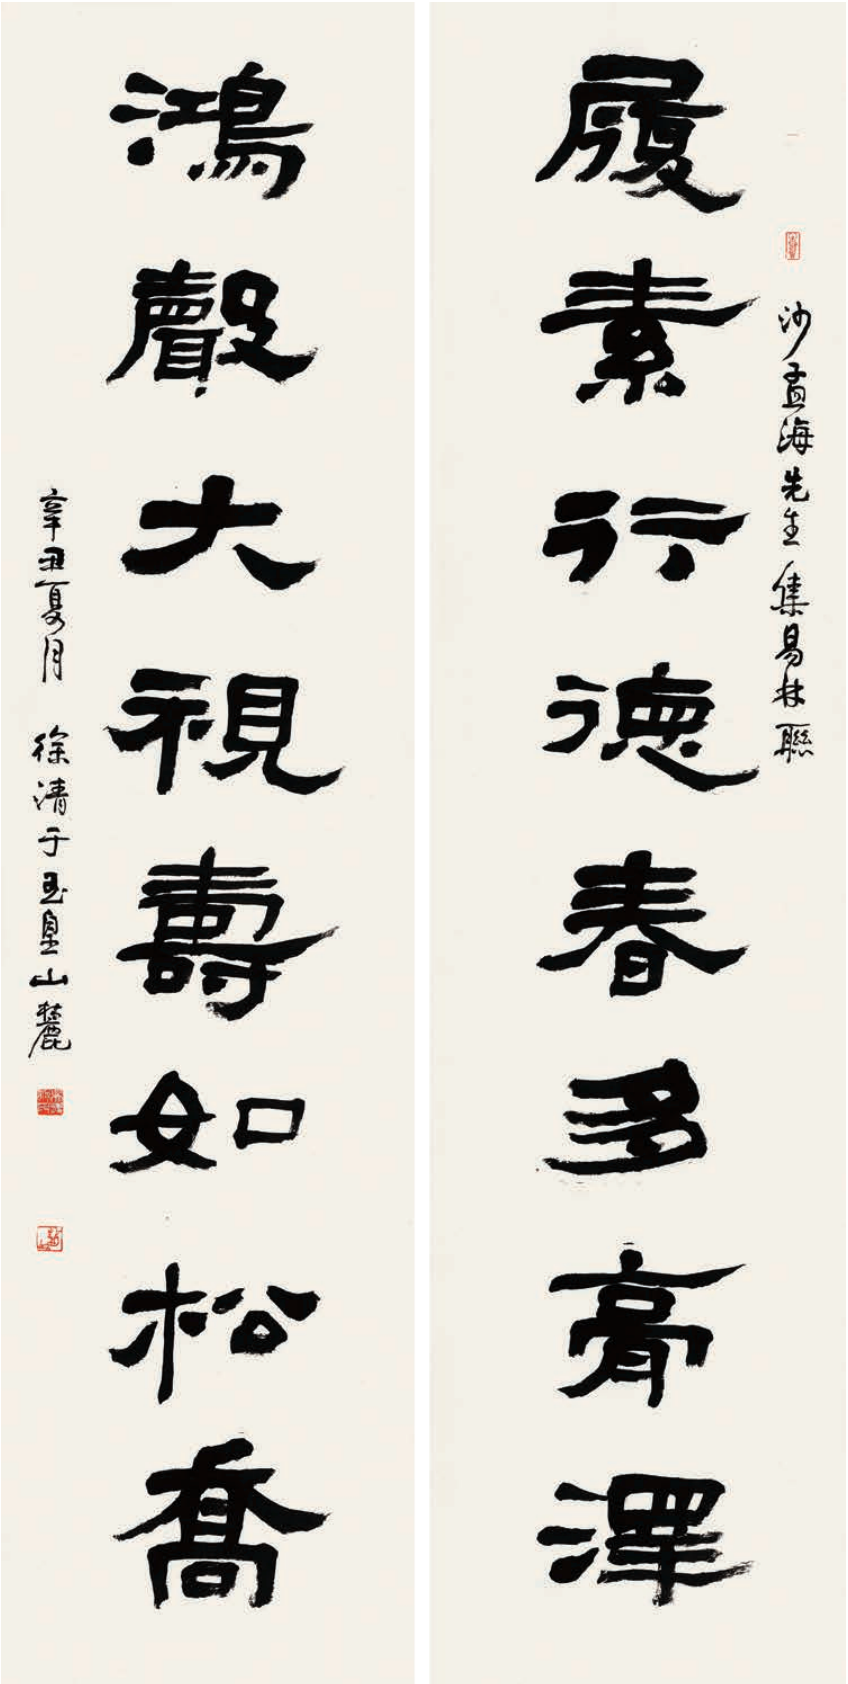 履素行德春多膏澤
沙孟海先生集易林聯
鴻聲大視壽如松喬
辛丑夏月 徐清于玉皇山麓